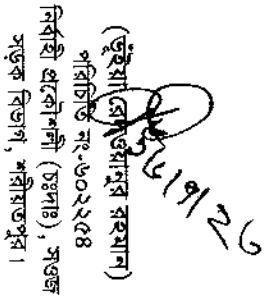 (ভূঁইয়া রেদওয়ানুর রহমান)
পরিচিতি নং-৬০২২৫৪
নির্বাহী প্রকৌশলী (চঃদাঃ), সওজ
সড়ক বিভাগ, শরীয়তপুর।